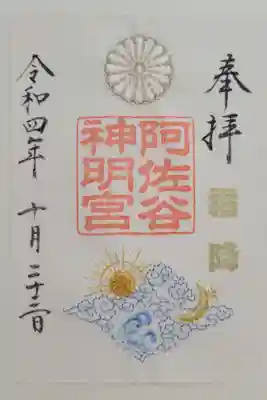 奉拝
阿佐谷
神明宮
令和四年 十月二十二日